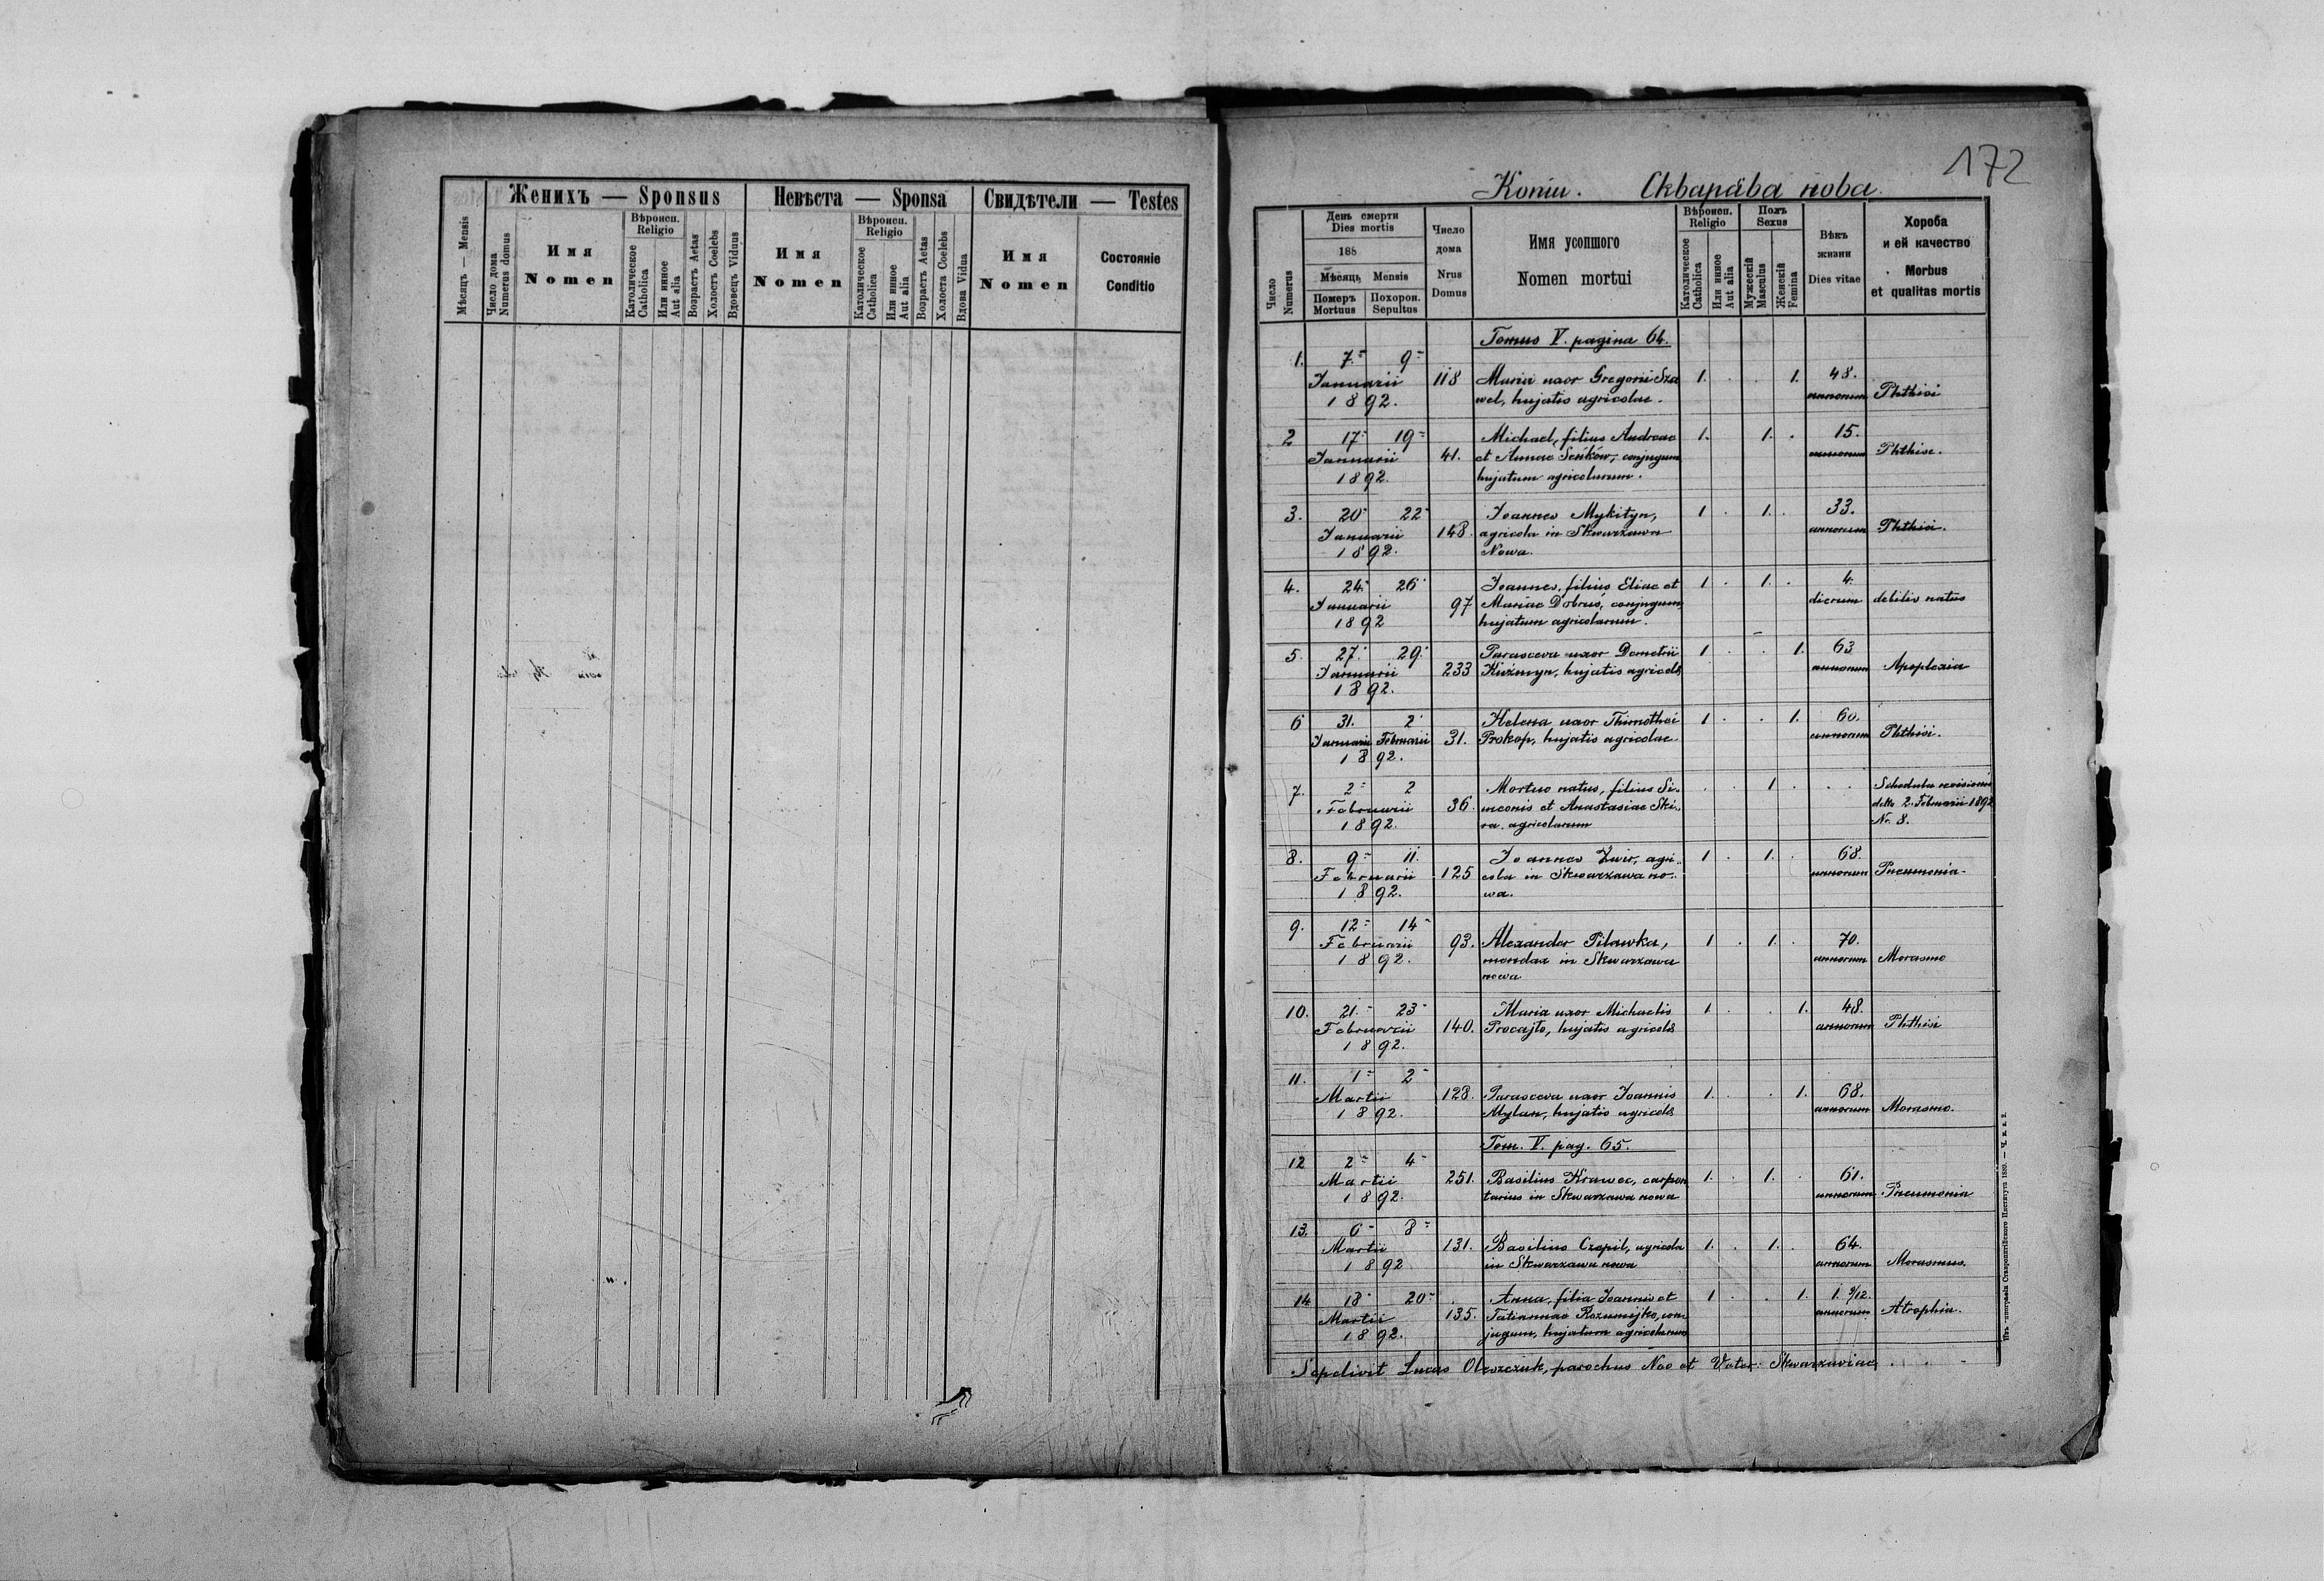 Женихъ — Sponsus
Невѣста — Sponsa
Свидѣтели — Testes
Мѣсяцъ — Mensis
Число дома
Numerus domus
Имя
Nomen
Вѣроисп.
Religio
Католическое
Catholica
Или инное
Aut alia
Возрастъ Aetas
Холостъ Coelebs
Вдовецъ Viduus
Имя
Nomen
Вѣроисп.
Religio
Католическое
Catholica
Или инное
Aut alia
Возрастъ Aetas
Холоста Coelebs
Вдова Vidua
Имя
Nomen
Состояніе
Conditio
172
Копіи. Скварѣва нова.
Число
Numerus
День смерти
Dies mortis
188
Мѣсяцъ Mensis
Померъ
Mortuus
Похорон.
Sepultus
Число
дома
Nrus
Domus
Имя усопшого
Nomen mortui
Вѣроисп.
Religio
Католическое
Catholica
Или инное
Aut alia
Полъ
Sexus
Мужескій
Masculus
Женскій
Femina
Вѣкъ
жизни
Dies vitae
Хороба
и ей качество
Morbus
et qualitas mortis
Tomus V. pagina 64.
1. 7. 9
Januarii 118 Maria uxor Gregorii Sza 1. . . 1. 48.
1892. wel, hujatis agricolae. annorum Phthisi
2 17 19 Michael, filius Andreae 1. 1. . 15.
Januarii 41. et Annae Seńków, conjugum annorum Phthise.
1892. hujatum agricolarum.
3. 20 22 Joannes Mykityn, 1 . 1. . 33.
Januarii 148. agricola in Skwarzawa annorum Phthisi.
1892. Nowa.
4. 24. 26 Joannes, filius Eliae et 1 . 1. . 4.
Januarii 97 Mariae Dobruś, conjugum dierum debilis natus
1892 hujatum agricolarum.
5. 27. 29. Parasceva uxor Demetrii 1 . . 1. 63
Januarii 233 Kuźmyn, hujatis agricolae annorum Apoplexia
1892.
6 31. 2 Helena uxor Thimothei 1 . . 1. 60.
Januarii Februarii 31. Prokop, hujatis agricolae annorum Phthisi.
1892.
7. 2 2 Mortuo natus, filius Si- . . 1 . . . Schedula revisionis
Februarii 36. meonis et Anastasiae Ski- ddto 2. Februarii 1892
1892. ra agricolarum Nr. 8.
8. 9 11. Joannes Żwir, agri- 1 . 1. . 68.
Februarii 125 cola in Skwarzawa no- annorum Pneumonia
1892. wa.
9. 12 14
Februarii 93. Alexander Pilawka, 1 . 1. . 70.
1892. mendax in Skwarzawa annorum Morasmo
nowa
10. 21. 23 Maria uxor Michaelis 1 . . 1. 48.
Februarii 140. Procajło, hujatis agricolae annorum Phthisi
1892.
11. 1 2
Martii 128. Parasceva uxor Joannis 1. . . 1. 68.
1892. Mylan, hujatis agricolae annorum Morasmo.
Tom. V. pag. 65.
12 2 4
Martii 251. Basilius Krawec, carpen 1. . 1. . 61.
1892. tarius in Skwarzawa nowa annorum Pneumonia
13. 6 8
Martii 131. Basilius Czopil, agricola 1. . 1. . 64.
1892 in Skwarzawa nowa annorum Morasmus.
14 18 20 Anna, filia Joannis et 1 . . 1. 1. 9/12.
Martii 135. Tatiannae Rozumijko, con annorum Atrophia.
1892. jugum, hujatum agricolarum
Sepelivit Lucas Olszczuk, parochus Noo et Veter: Skwarzaviae
Изъ типографіи Ставропигійского Института 1889.